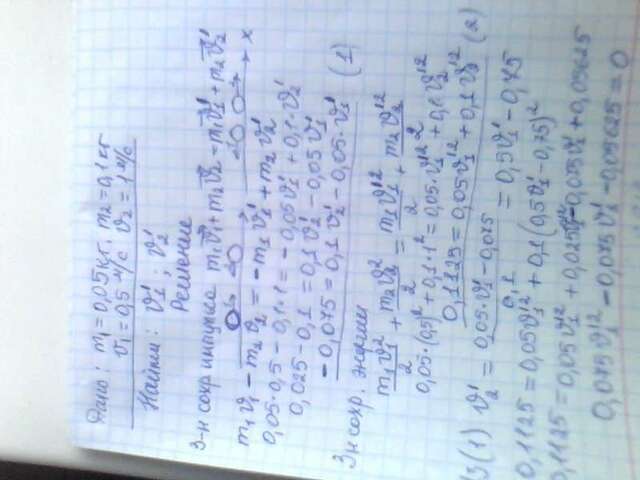 Дано: m₁=0,05 кг, m₂=0,1 кг
v₁=0,5 м/с v₂=1 м/с
Найти: v₁'; v₂'
Решение
З-н сохр импульса m₁v₁+m₂v₂=m₁v₁'+m₂v₂'
x
m₁v₁ - m₂v₂ = -m₁v₁' + m₂v₂'
0,05·0,5 - 0,1·1 = -0,05v₁' + 0,1·v₂'
0,025 - 0,1 = 0,1v₂' - 0,05v₁'
-0,075 = 0,1v₂' - 0,05·v₁' (1)
Зн сохр. энергии
m₁v₁²/2 + m₂v₂²/2 = m₁v₁'²/2 + m₂v₂'²/2
0,05·(0,5)² + 0,1·1² = 0,05·v₁'² + 0,1v₂'²
0,1125 = 0,05v₁'² + 0,1v₂'² (2)
Из (1) v₂' = 0,05·v₁' - 0,075 / 0,1 = 0,5v₁' - 0,75
0,1125 = 0,05v₁'² + 0,1(0,5v₁' - 0,75)²
0,1125 = 0,05v₁'² + 0,025v₁'² - 0,075v₁' + 0,05625
0,075v₁'² - 0,075v₁' - 0,05625 = 0